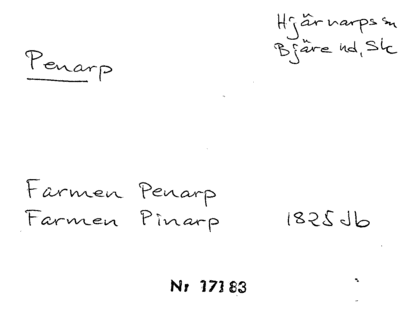 Hjärnarps sn
Bjäre hd, Sk
Penarp
Farmen Penarp
Farmen Pinarp 1825 Jb
Nr 17183